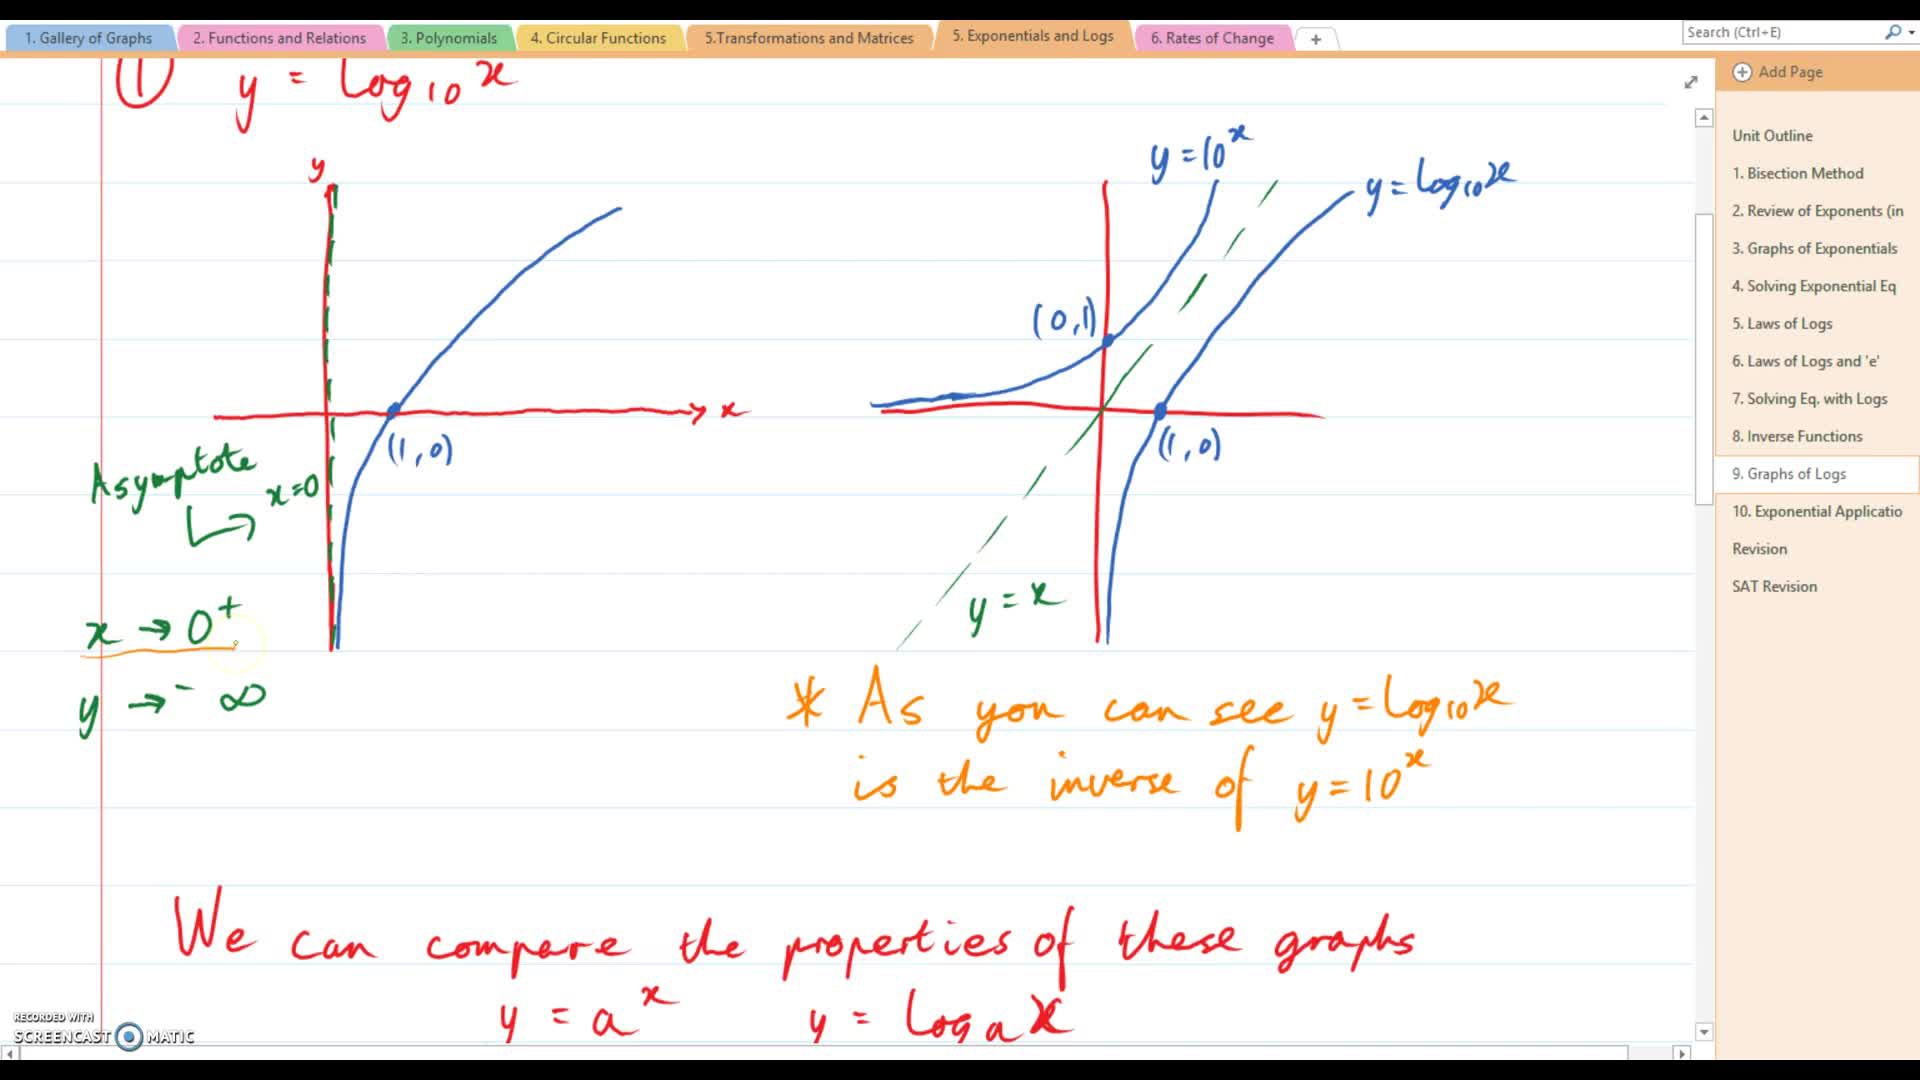 1. Gallery of Graphs
2. Functions and Relations
3. Polynomials
4. Circular Functions
5.Transformations and Matrices
5. Exponentials and Logs
6. Rates of Change
+
Search (Ctrl+E)
Add Page
Unit Outline
1. Bisection Method
2. Review of Exponents (in
3. Graphs of Exponentials
4. Solving Exponential Eq
5. Laws of Logs
6. Laws of Logs and 'e'
7. Solving Eq. with Logs
8. Inverse Functions
9. Graphs of Logs
10. Exponential Applicatio
Revision
SAT Revision
① y = log₁₀ x
y
x
(1, 0)
Asymptote
x=0
x → 0⁺
y → ⁻∞
y = 10ˣ
y = log₁₀x
(0, 1)
(1, 0)
y = x
* As you can see y = log₁₀x
is the inverse of y = 10ˣ
We can compare the properties of these graphs
y = aˣ y = logₐ x
RECORDED WITH
SCREENCAST MATIC